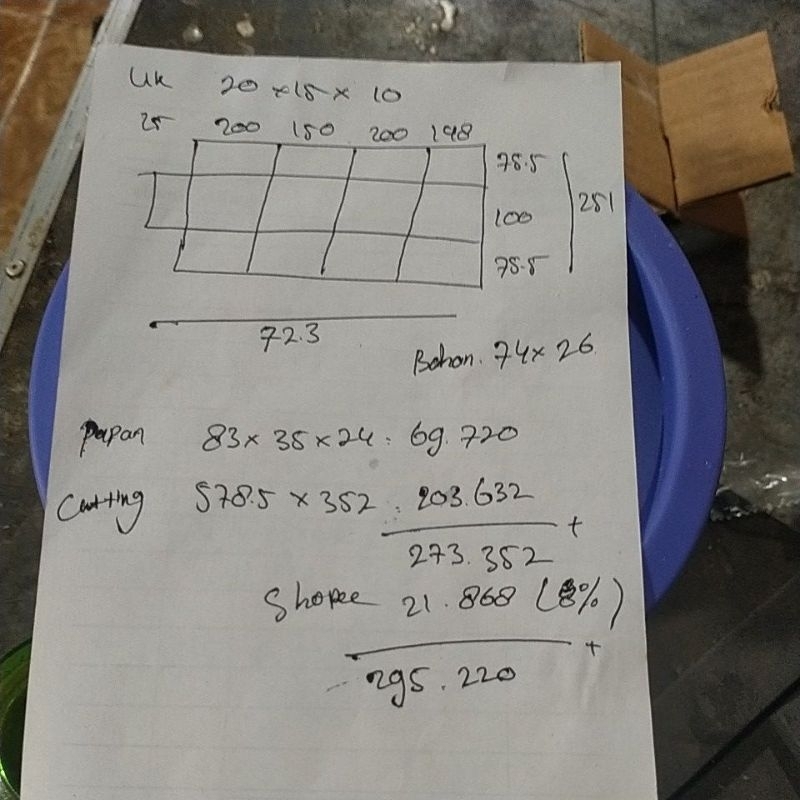 Uk 20 x 15 x 10
25 200 150 200 148
75.5
100
75.5
251
72.3
Bahan. 74 x 26
Papan 83 x 35 x 24 : 69.720
Cutting 578.5 x 352 : 203.632
+
273.352
Shopee 21.868 (8%)
+
295.220